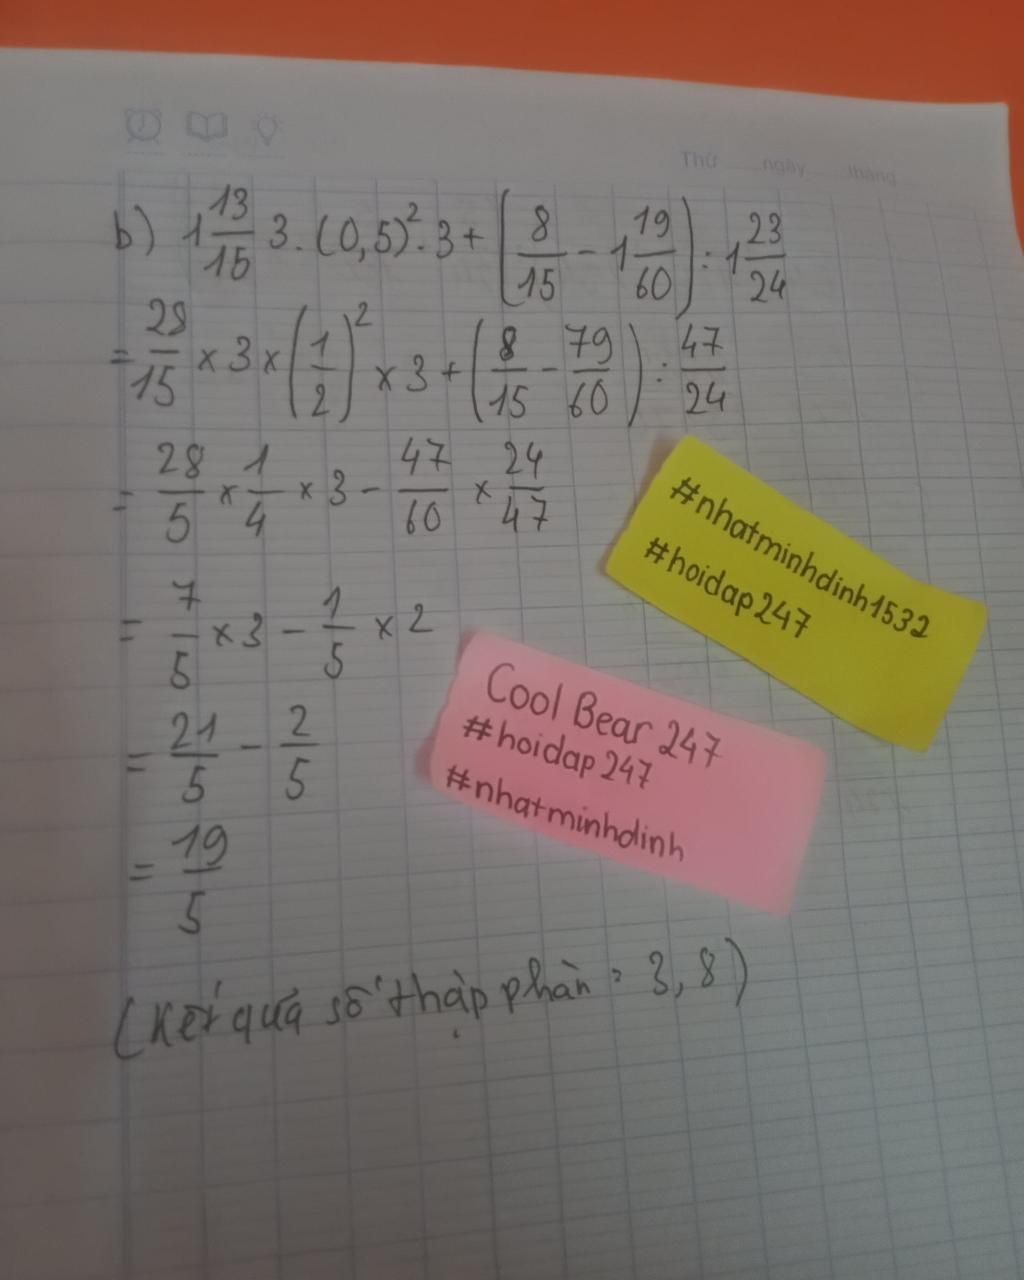 Thứ ngày tháng
b) 1 13/15 3. (0,5)². 3 + (8/15 - 1 19/60) : 1 23/24
= 28/15 × 3 × (1/2)² × 3 + (8/15 - 79/60) : 47/24
= 28/5 × 1/4 × 3 - 47/60 × 24/47
= 7/5 × 3 - 1/5 × 2
= 21/5 - 2/5
= 19/5
(Kết quả số thập phân = 3,8)
#nhatminhdinh1532
#hoidap247
Cool Bear 247
#hoidap247
#nhatminhdinh